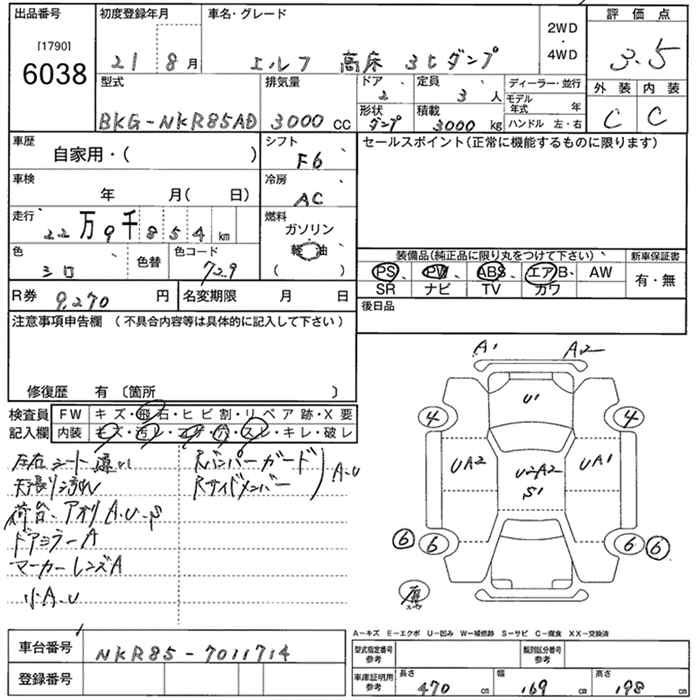 出品番号
[1790]
6038
初度登録年月
21 8月
車名・グレード
エルフ 高床 3tダンプ
2WD
4WD
評価点
3.5
外装 内装
C C
型式
BKG-NKR85AD
排気量
3000 CC
ドア
2
定員
3 人
形状
ダンプ
積載
3000 kg
ディーラー・並行
モデル年式 年
ハンドル 左・右
車歴
自家用・( )
シフト
F6
車検
年 月( 日)
冷房
AC
走行
22万9千854km
燃料
ガソリン
軽油
( )
色
シロ
色替
色コード
729
R券 9,270 円
名変期限 月 日
セールスポイント(正常に機能するものに限ります)
装備品(純正品に限り丸をつけて下さい)
PS PW ABS エアB AW
SR ナビ TV カワ
新車保証書
有・無
後日品
注意事項申告欄 (不具合内容等は具体的に記入して下さい)
修復歴 有 〔箇所 〕
検査員記入欄
FW キズ・飛石・ヒビ割・リペア跡・X要
内装 キズ・汚レ・コゲ・穴・スレ・キレ・破レ
左右シート
荷台、アオリ A.U.S
ドアミラーA
マーカーレンズA
小A.U
Rバンパーガード
Rサイドメンバー
A.U
A1 A2
U1
4 4
UA2 U2A2 S1 UA1
6 6 6 6
A-キズ E-エクボ U-凹み W-補修跡 S-サビ C-腐食 XX-交換済
車台番号 NKR85-7011714
登録番号
型式指定番号参考
類別区分番号参考
車庫証明用参考
長さ 470 cm
幅 169 cm
高さ 198 cm